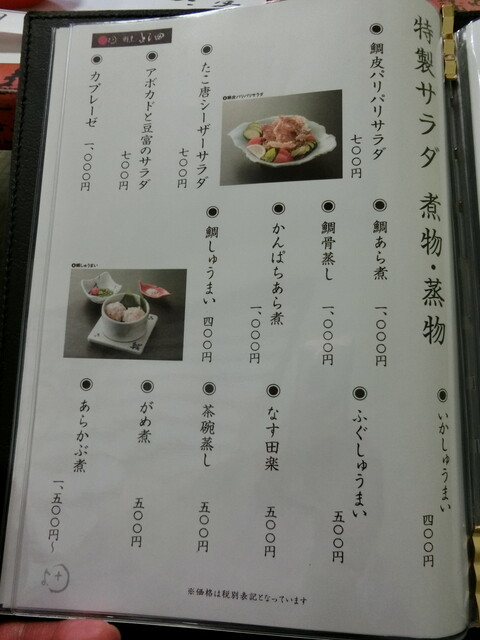 特製サラダ 煮物・蒸物
◉鯛皮パリパリサラダ 七〇〇円
◉鯛皮パリパリサラダ
◉たこ唐シーザーサラダ 七〇〇円
◉アボカドと豆富のサラダ 七〇〇円
◉カプレーゼ 一、〇〇〇円
◉鯛あら煮 一、〇〇〇円
◉鯛骨蒸し 一、〇〇〇円
◉かんぱちあら煮 一、〇〇〇円
◉鯛しゅうまい 四〇〇円
◉鯛しゅうまい
◉いかしゅうまい 四〇〇円
◉ふぐしゅうまい 五〇〇円
◉なす田楽 五〇〇円
◉茶碗蒸し 五〇〇円
◉がめ煮 五〇〇円
◉あらかぶ煮 一、五〇〇円~
※価格は税別表記となっています